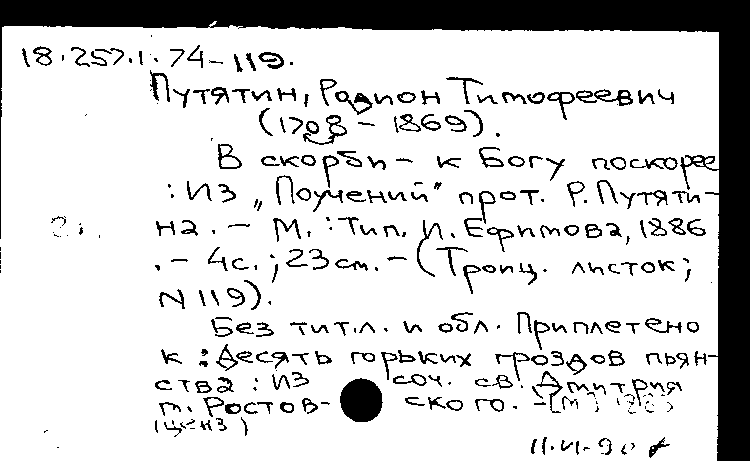 18.257.1.74-119.
Путятин, Родион Тимофеевич
(1708 - 1869).
В скорби - к Богу поскорее
: Из „Поучений" прот. Р. Путяти-
на. - М. : Тип. И. Ефимова, 1886
. - 4с. ; 23см. - (Троиц. листок ;
N 119).
Без тит.л. и обл. Приплетено
к : Десять горьких гроздов пьян-
ства : из соч. св. Дмитрия
м. Ростов- ского. - [М.]
(ценз)
11.VI.90